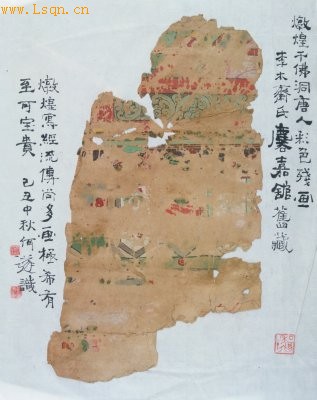 www.Lsqn.cn
燉煌千佛洞唐人彩色殘画
李木齋氏麐嘉舘舊藏
燉煌寫經流傳尚多画極希有
至可寶貴 己丑中秋何遂識